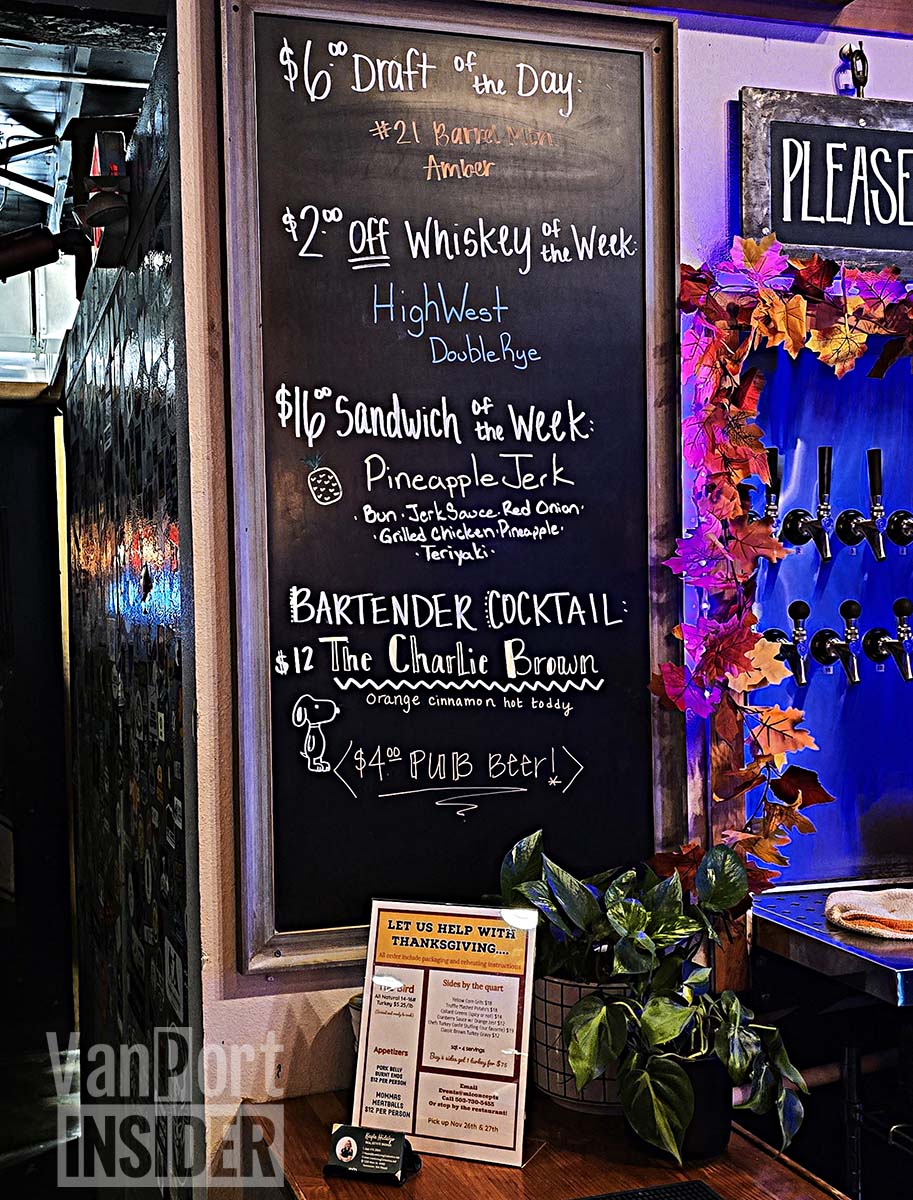 $6.00 Draft of the Day:
#21 Barrel Mtn
Amber
$2.00 off Whiskey of the Week:
HighWest
Double Rye
$16.00 Sandwich of the Week:
Pineapple Jerk
· Bun · Jerk Sauce · Red Onion ·
· Grilled Chicken · Pineapple ·
· Teriyaki ·
BARTENDER COCKTAIL:
$12 The Charlie Brown
orange cinnamon hot toddy
<$4.00 PUB BEER!>
PLEASE
LET US HELP WITH
THANKSGIVING....
All order include packaging and reheating instructions
The Bird
All Natural 14-16#
Turkey $5.25/lb
Appetizers
PORK BELLY
BURNT ENDS
$12 PER PERSON
MOMMAS
MEATBALLS
$12 PER PERSON
Sides by the quart
Yellow Corn Grits $18
Truffle Mashed Potato's $18
Collard Greens (spicy or not) $14
Cranberry Sauce w/ Orange Zest $12
Chefs Turkey Confit Stuffing (our favorite) $19
Classic Brown Turkey Gravy $12
1qt = 4 servings
Buy 4 sides get 1 turkey for $75
Email
Events@mlconcepts
Call 503-730-5455
Or stop by the restaurant!
Pick up Nov 26th & 27th
VanPort
INSIDER